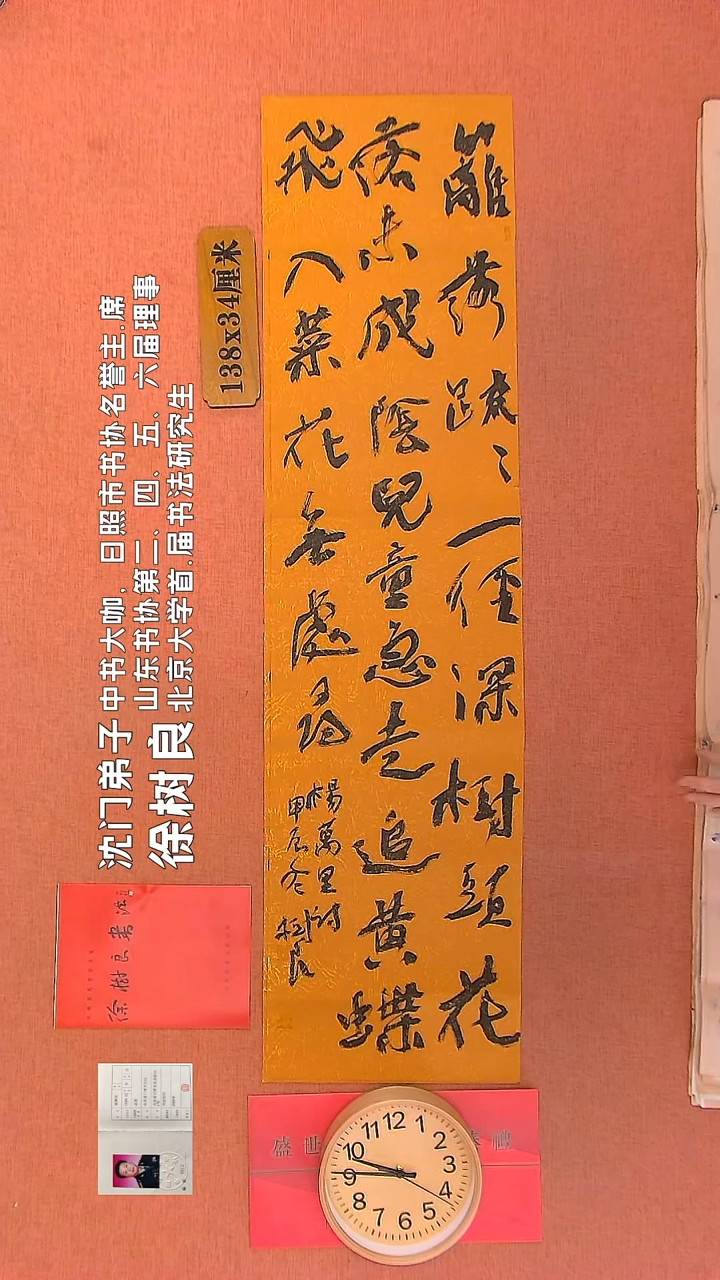 籬落疏々一徑深樹頭花
落未成陰兒童急走追黃蝶
飛入菜花無處尋
楊萬里詩
甲辰冬樹良
138x34厘米
沈门弟子
徐树良
中书大咖,日照市书协名誉主.席
山东书协第二、四、五、六届理事
北京大学首.届书法研究生
徐樹良書法
盛世
禮
12
1
2
3
4
5
6
7
8
9
10
11